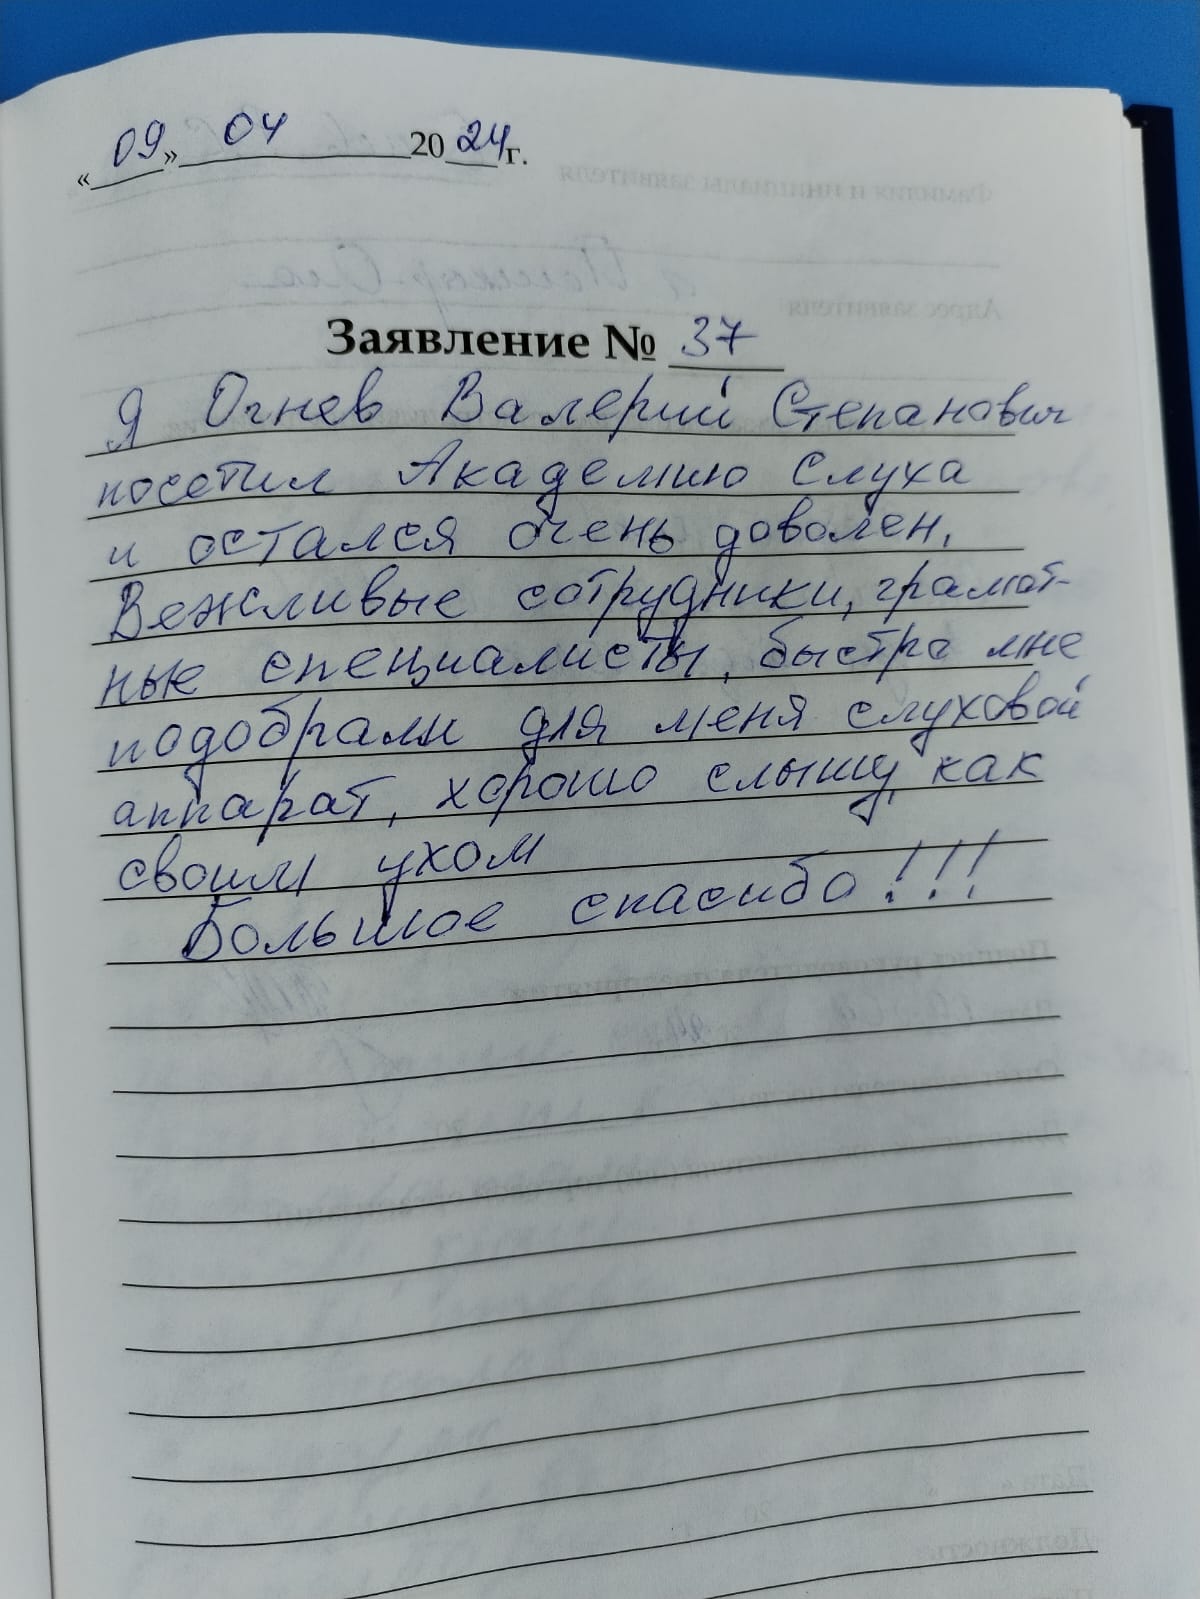 «09» 04 2024 г.
Заявление № 37
Я Огнев Валерий Степанович
посетил Академию Слуха
и остался очень доволен,
Вежливые сотрудники, грамот-
ные специалисты, быстро мне
подобрали для меня слуховой
аппарат, хорошо слышу, как
своим ухом
Большое спасибо!!!